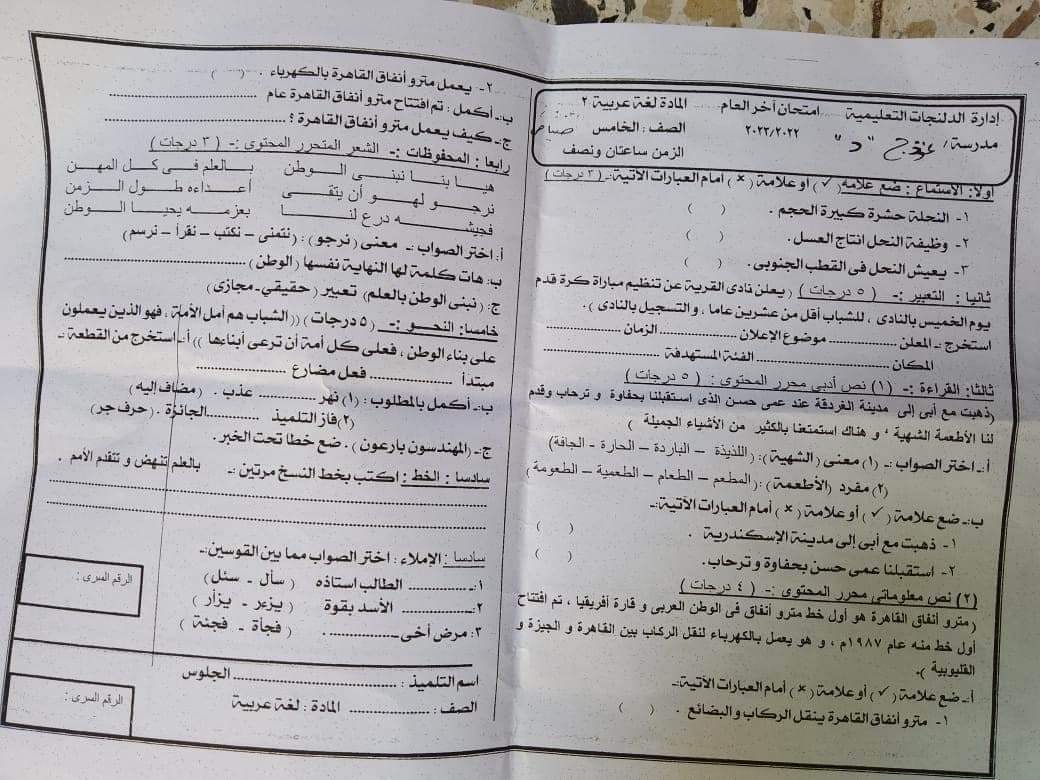 إدارة الدلنجات التعليمية امتحان أخر العام المادة لغة عربية ٢
مدرسة / نموذج "د" ٢٠٢٣/٢٠٢٢ الصف : الخامس صباحا
الزمن ساعتان ونصف
اولا: الاستماع : ضع علامه ( ✓ ) او علامة ( × ) امام العبارات الآتية:ـ ( ٣ درجات )
١- النحلة حشرة كبيرة الحجم . ( )
٢- وظيفة النحل انتاج العسل. ( )
٣- يعيش النحل فى القطب الجنوبى. ( )
ثانيا : التعبير :- ( ٥ درجات ) ( يعلن نادى القرية عن تنظيم مباراة كرة قدم
يوم الخميس بالنادى ، للشباب أقل من عشرين عاما ، و التسجيل بالنادى ).
استخرج :ـ المعلن .......... موضوع الإعلان .......... الزمان ..........
المكان .......... الفئة المستهدفة ..........
ثالثا: القراءة :- ( ١ ) نص أدبى محرر المحتوى : ( ٥ درجات )
(ذهبت مع أبى إلى مدينة الغردقة عند عمى حسن الذى استقبلنا بحفاوة و ترحاب وقدم
لنا الأطعمة الشهية ، و هناك استمتعنا بالكثير من الأشياء الجميلة )
أ:ـ اختر الصواب:ـ (١) معنى (الشهية) : (اللذيذة – الباردة - الحارة - الجافة)
(٢) مفرد (الأطعمة) : (المطعم – الطعام – الطعمية – الطعومة)
ب:ـ ضع علامة ( ✓ ) أو علامة ( × ) أمام العبارات الآتية:ـ
١- ذهبت مع أبى إلى مدينة الإسكندرية . ( )
٢- استقبلنا عمى حسن بحفاوة و ترحاب. ( )
(٢) نص معلوماتى محرر المحتوى :- ( ٤ درجات )
(مترو أنفاق القاهرة هو أول خط مترو أنفاق فى الوطن العربى و قارة أفريقيا ، تم افتتاح
أول خط منه عام ١٩٨٧م ، و هو يعمل بالكهرباء لنقل الركاب بين القاهرة و الجيزة و
القليوبية ).
أ:ـ ضع علامة ( ✓ ) أو علامة ( × ) أمام العبارات الآتية:ـ
١- مترو أنفاق القاهرة ينقل الركاب و البضائع . ( )
٢- يعمل مترو أنفاق القاهرة بالكهرباء . ( )
ب:ـ أكمل : تم افتتاح مترو أنفاق القاهرة عام ..........
ج:ـ كيف يعمل مترو أنفاق القاهرة ؟ ..........
رابعا : المحفوظات :- الشعر المتحرر المحتوى :- ( ٣ درجات )
هيا بنا نبنى الوطن بالعلم فى كل المهن
نرجو لهو أن يتقى أعداءه طول الزمن
فجيشه درع لنا بعزمه يحيا الوطن
أ: اختر الصواب :ـ معنى ( نرجو ) : ( نتمنى – نكتب – نقرأ – نرسم )
ب: هات كلمة لها النهاية نفسها ( الوطن ) ..........
ج: ( نبنى الوطن بالعلم ) تعبير ( حقيقي - مجازي )
خامسا : النحو :- ( ٥ درجات ) (( الشباب هم أمل الأمة ، فهو الذين يعملون
على بناء الوطن ، فعلى كل أمة أن ترعى أبناءها )) أ:ـ استخرج من القطعة :ـ
مبتدأ .......... فعل مضارع ..........
ب:ـ أكمل بالمطلوب : (١) نهر .......... عذب . (مضاف إليه )
(٢) فاز التلميذ .......... الجائزة . (حرف جر )
ج:ـ (المهندسون بارعون ) . ضع خطا تحت الخبر .
سادسا : الخط : اكتب بخط النسخ مرتين :ـ بالعلم تنهض و تتقدم الأمم .
..........
..........
سادسا : الإملاء : اختر الصواب مما بين القوسين :ـ
١:ـ .......... الطالب استاذه ( سأل ـ سئل )
٢:ـ .......... الأسد بقوة ( يزءر ـ يزأر )
٣: مرض أخى .......... . ( فجأة ـ فجئة )
الرقم السرى :
اسم التلميذ : .......... الجلوس
الصف : .......... المادة : لغة عربية
الرقم السرى :